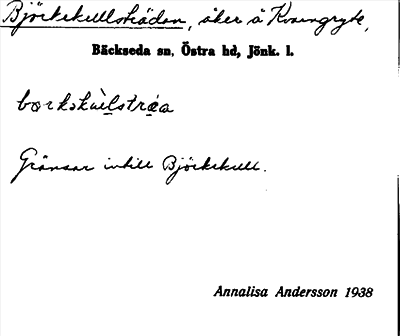 Björkekullsträdan, åker å Kvarngryte,
Bäckseda sn, Östra hd, Jönk. l.
bœrkskùlstráa
Gränsar intill Björkekull.
Annalisa Andersson 1938